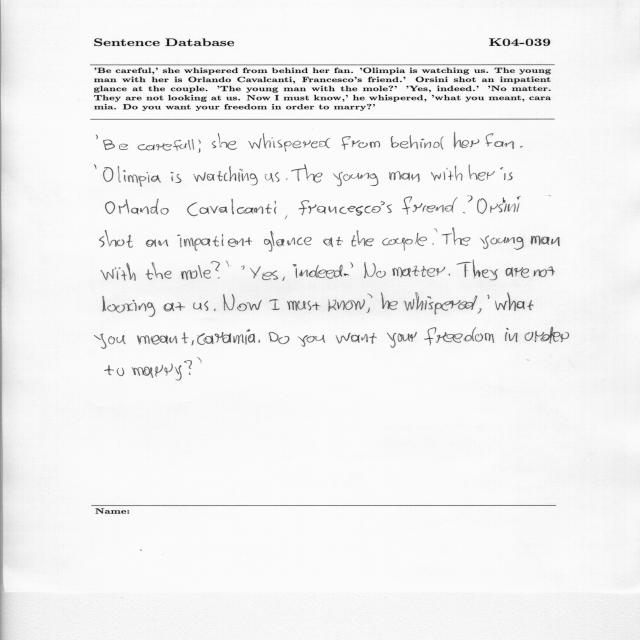 Sentence Database K04-039
'Be careful,' she whispered from behind her fan. 'Olimpia is watching us. The young
man with her is Orlando Cavalcanti, Francesco's friend.' Orsini shot an impatient
glance at the couple. 'The young man with the mole?' 'Yes, indeed.' 'No matter.
They are not looking at us. Now I must know,' he whispered, 'what you meant, cara
mia. Do you want your freedom in order to marry?'
'Be carefull,' she whispered from behind her fan.
'Olimpia is watching us. The young man with her is
Orlando Cavalcanti, francesco's friend.' Orsini
shot an impatient glance at the couple. 'The young man
with the mole?' 'Yes, indeed.' No matter. They are not
looking at us. Now I must know,' he whispered, 'what
you meant, cara mia. Do you want your freedom in order
to marry?'
Name: